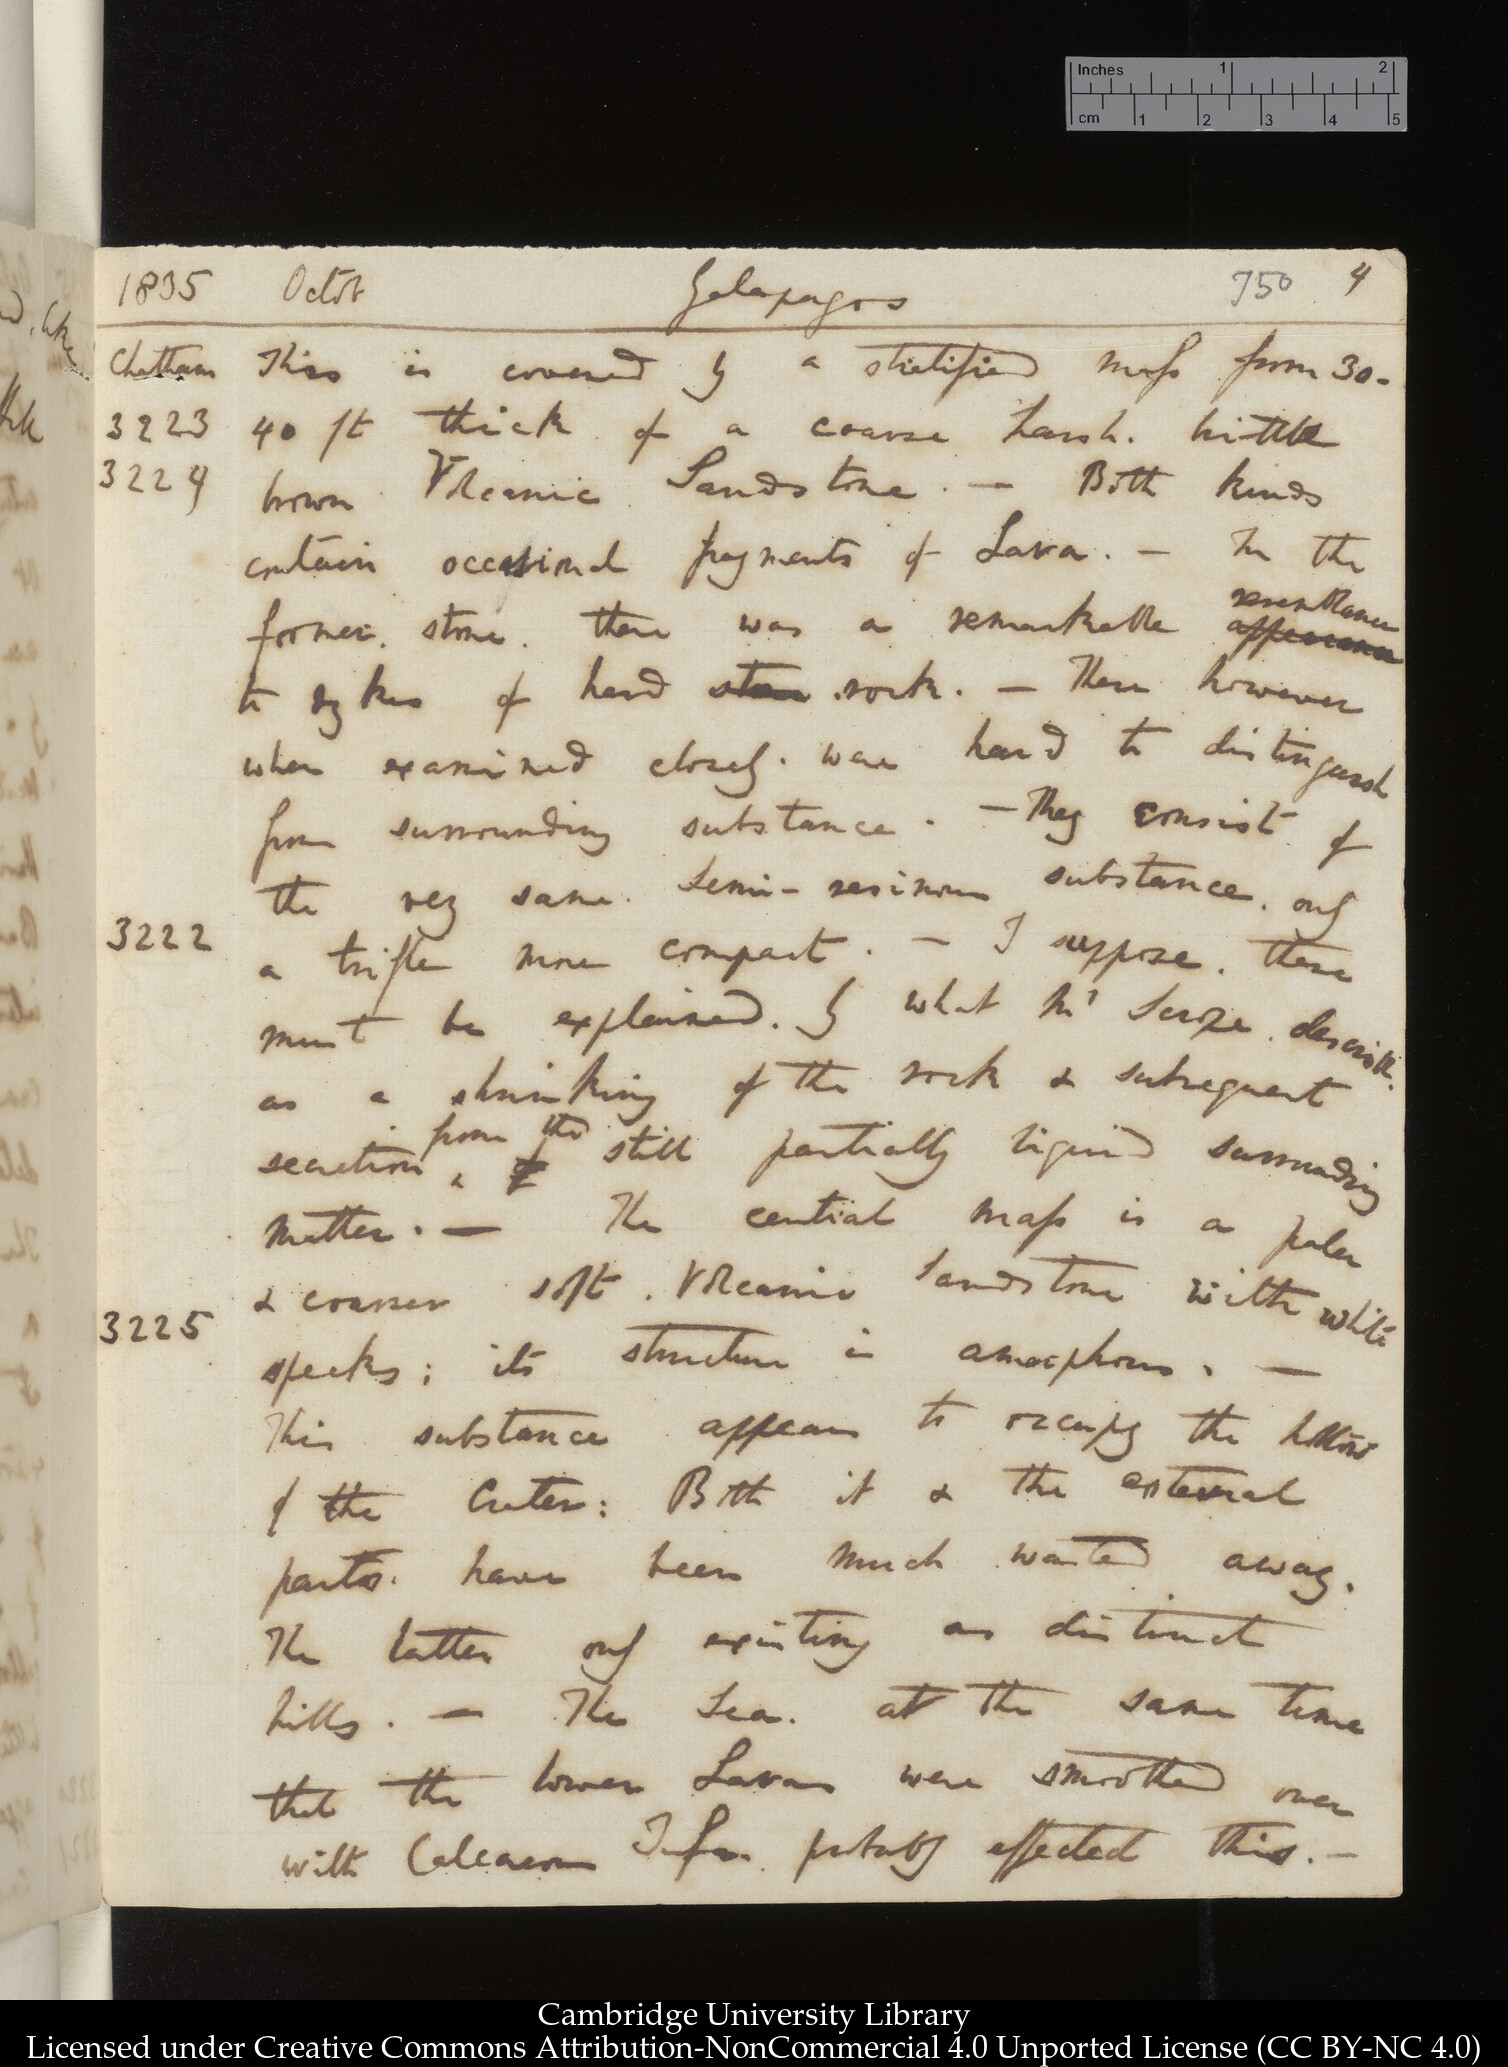 Inches 1 2
cm 1 2 3 4 5
1835 Octob Galapagos 750 4
Chatham This is covered by a stratified mass from 30-
3223 40 ft thick of a coarse harsh. brittle
3224 brown Volcanic Sandstone. — Both kinds
contain occasional fragments of Lava. — In the
resemblance
former. stone. there was a remarkable appearance
to dykes of hard stone rock. — These however
when examined closely. were hard to distinguish
from surrounding substance. — They consist of
the very same. Semi-resinous substance. only
3222 a trifle more compact. — I suppose. these
must be explained. by what Mr Scrope. describes.
as a shrinking of the rock & subsequent
from the
secretion, of still partially liquid surrounding
matter. — The central mass is a paler
& coarser soft. Volcanic Sandstone with white
3225 specks; its structure is amorphous. —
This substance appears to occupy the hollow
of the Crater: Both it & the external
parts. have been much wasted away.
The latter only existing as distinct
hills. — The Sea. at the same time
that the lower Lavas were smoothed over
with Calcareous Tufa. probably effected this. —
Cambridge University Library
Licensed under Creative Commons Attribution-NonCommercial 4.0 Unported License (CC BY-NC 4.0)